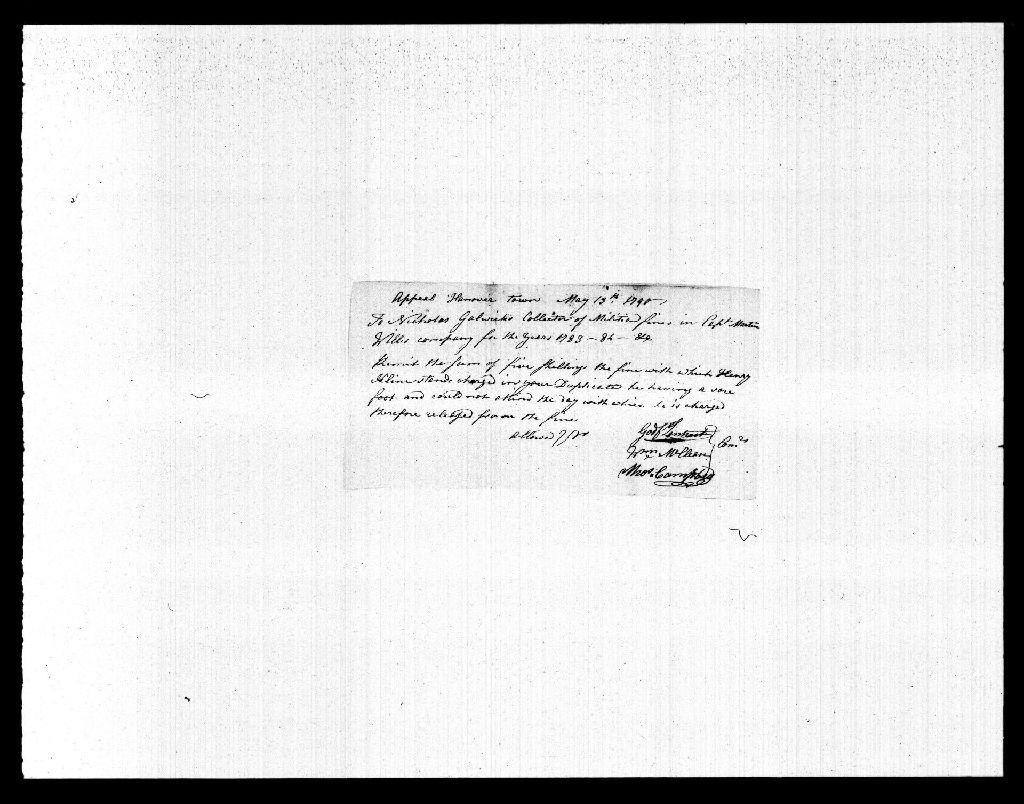 Appeal Hanover town May 13th 1790
To Nicholas Gelwicks Collector of Militia fines in Capt Martin
Wills company for the Years 1783 - 84 - &c.
Remit the sum of five Shillings the fine with which Henry
Kline stands charged in your Duplicate he having a sore
foot and could not attend the day with which he is charged
therefore released from the fine
Allowed
Godf
Wm McClean
Thos. Campbell
Comrs